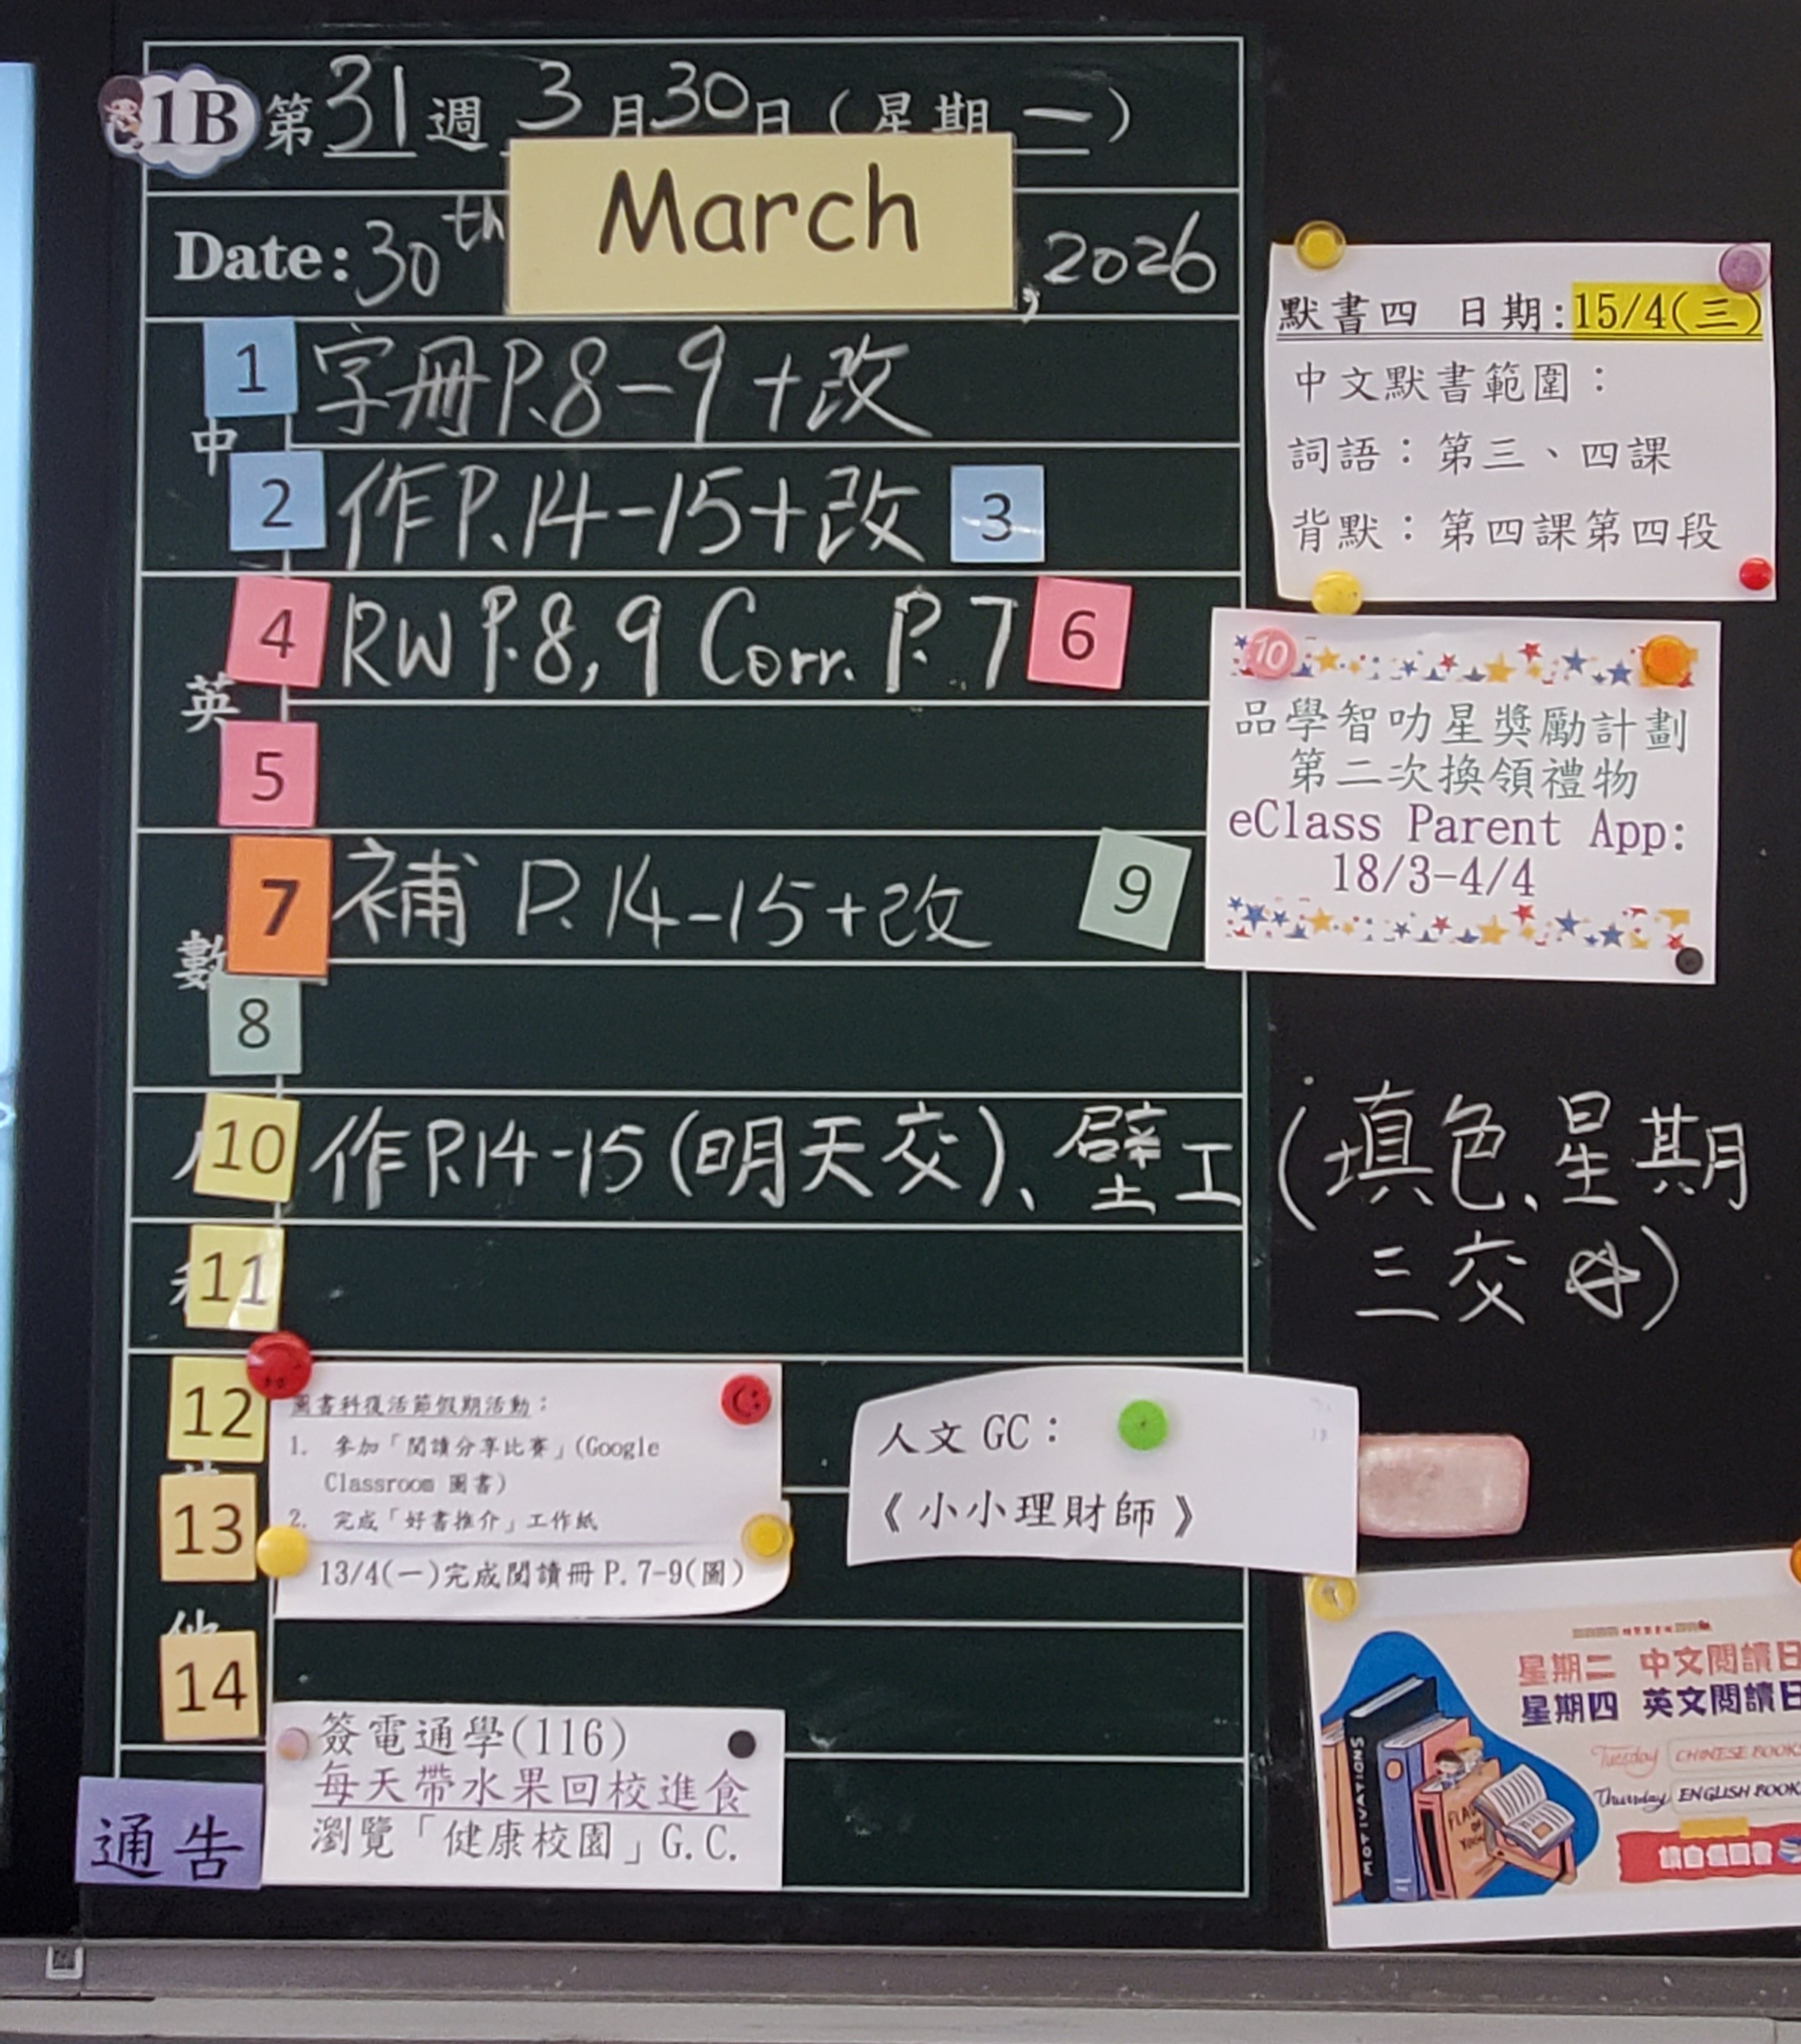 1B 第31週 3月30日(星期一)
March
Date: 30th , 2026
中
1 字冊P.8-9+改
2 作P.14-15+改 3
英
4 RW P.8,9 Corr. P.7 6
5
數
7 補 P.14-15+改 9
8
10 作P.14-15(明天交)、壁工(填色、星期
三交)
11
12
13
14
圖書科復活節假期活動：
1. 參加「閱讀分享比賽」(Google
Classroom 圖書)
2. 完成「好書推介」工作紙
13/4(一)完成閱讀冊 P.7-9(圖)
人文 GC：
《小小理財師》
通告
簽電通學(116)
每天帶水果回校進食
瀏覽「健康校園」G.C.
默書四 日期:15/4(三)
中文默書範圍：
詞語：第三、四課
背默：第四課第四段
10
品學智叻星獎勵計劃
第二次換領禮物
eClass Parent App:
18/3-4/4
星期二 中文閱讀日
星期四 英文閱讀日
Tuesday CHINESE BOOKS
Thursday ENGLISH BOOK
請自備圖書
MOTIVATIONS